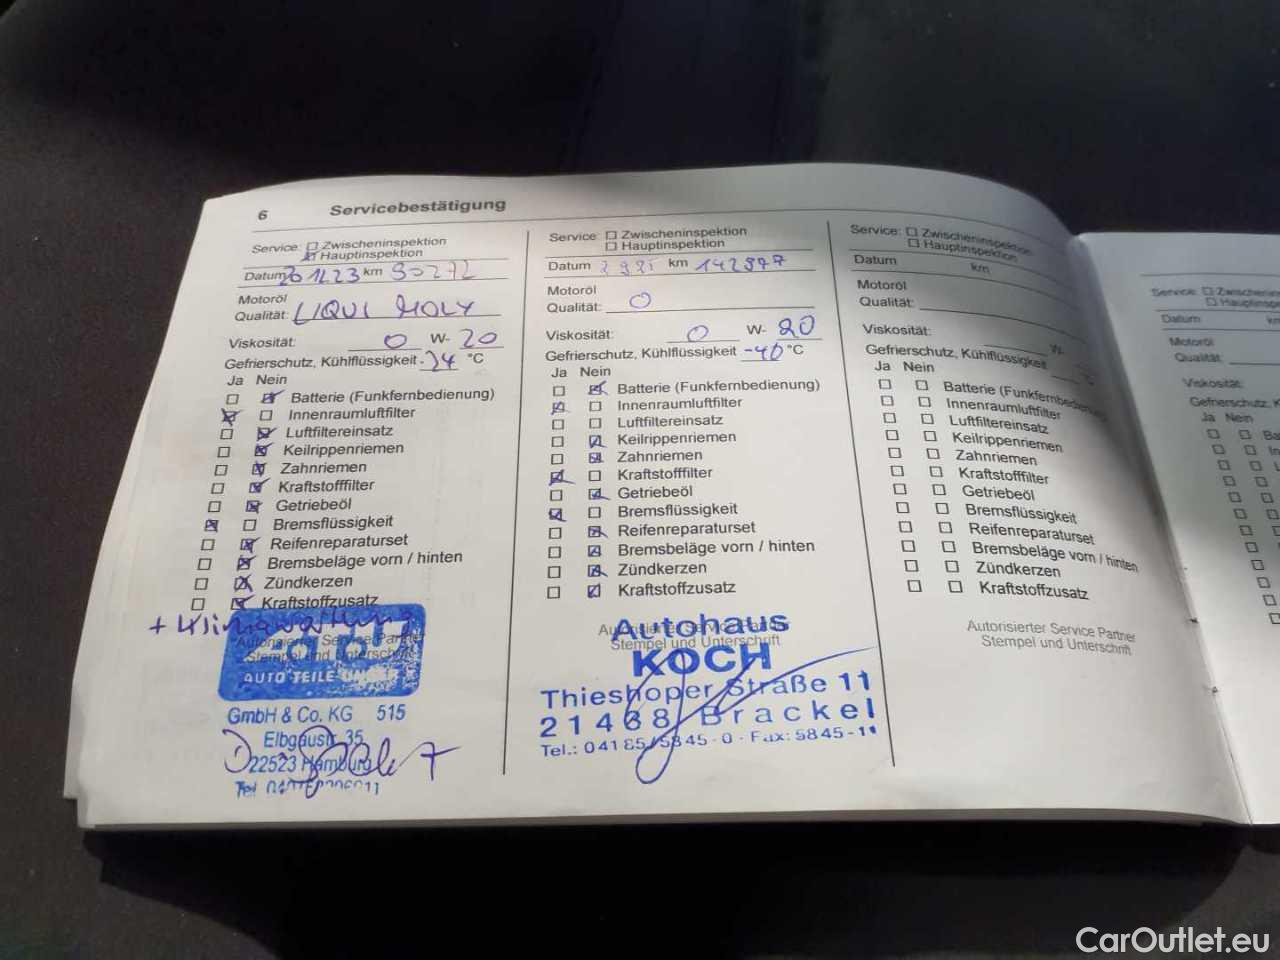 6 Servicebestätigung
Service: Zwischeninspektion
Hauptinspektion
Datum 20.12.23 km 90272
Motoröl
Qualität: LIQUI MOLY
Viskosität: 0 W- 20
Gefrierschutz, Kühlflüssigkeit -34 °C
Ja Nein
Batterie (Funkfernbedienung)
Innenraumluftfilter
Luftfiltereinsatz
Keilrippenriemen
Zahnriemen
Kraftstofffilter
Getriebeöl
Bremsflüssigkeit
Reifenreparaturset
Bremsbeläge vorn / hinten
Zündkerzen
Kraftstoffzusatz
+ Klimawartung
Autorisierter Service Partner
Stempel und Unterschrift
AUTO TEILE UNGER
GmbH & Co. KG 515
Elbgaustr. 35
22523 Hamburg
Tel
Service: Zwischeninspektion
Hauptinspektion
Datum km 142977
Motoröl
Qualität: 0
Viskosität: 0 W- 20
Gefrierschutz, Kühlflüssigkeit -40 °C
Ja Nein
Batterie (Funkfernbedienung)
Innenraumluftfilter
Luftfiltereinsatz
Keilrippenriemen
Zahnriemen
Kraftstofffilter
Getriebeöl
Bremsflüssigkeit
Reifenreparaturset
Bremsbeläge vorn / hinten
Zündkerzen
Kraftstoffzusatz
Autorisierter Service Partner
Stempel und Unterschrift
Autohaus
KOCH
Thieshoper Straße 11
21438 Brackel
Tel.: 04185/5845-0 · Fax: 5845-11
Service: Zwischeninspektion
Hauptinspektion
Datum km
Motoröl
Qualität:
Viskosität: W-
Gefrierschutz, Kühlflüssigkeit °C
Ja Nein
Batterie (Funkfernbedienung)
Innenraumluftfilter
Luftfiltereinsatz
Keilrippenriemen
Zahnriemen
Kraftstofffilter
Getriebeöl
Bremsflüssigkeit
Reifenreparaturset
Bremsbeläge vorn / hinten
Zündkerzen
Kraftstoffzusatz
Autorisierter Service Partner
Stempel und Unterschrift
Service: Zwischeninspektion
Hauptinspektion
Datum km
Motoröl
Qualität:
Viskosität:
Gefrierschutz, K
Ja Nein
Ba
In
L
CarOutlet.eu